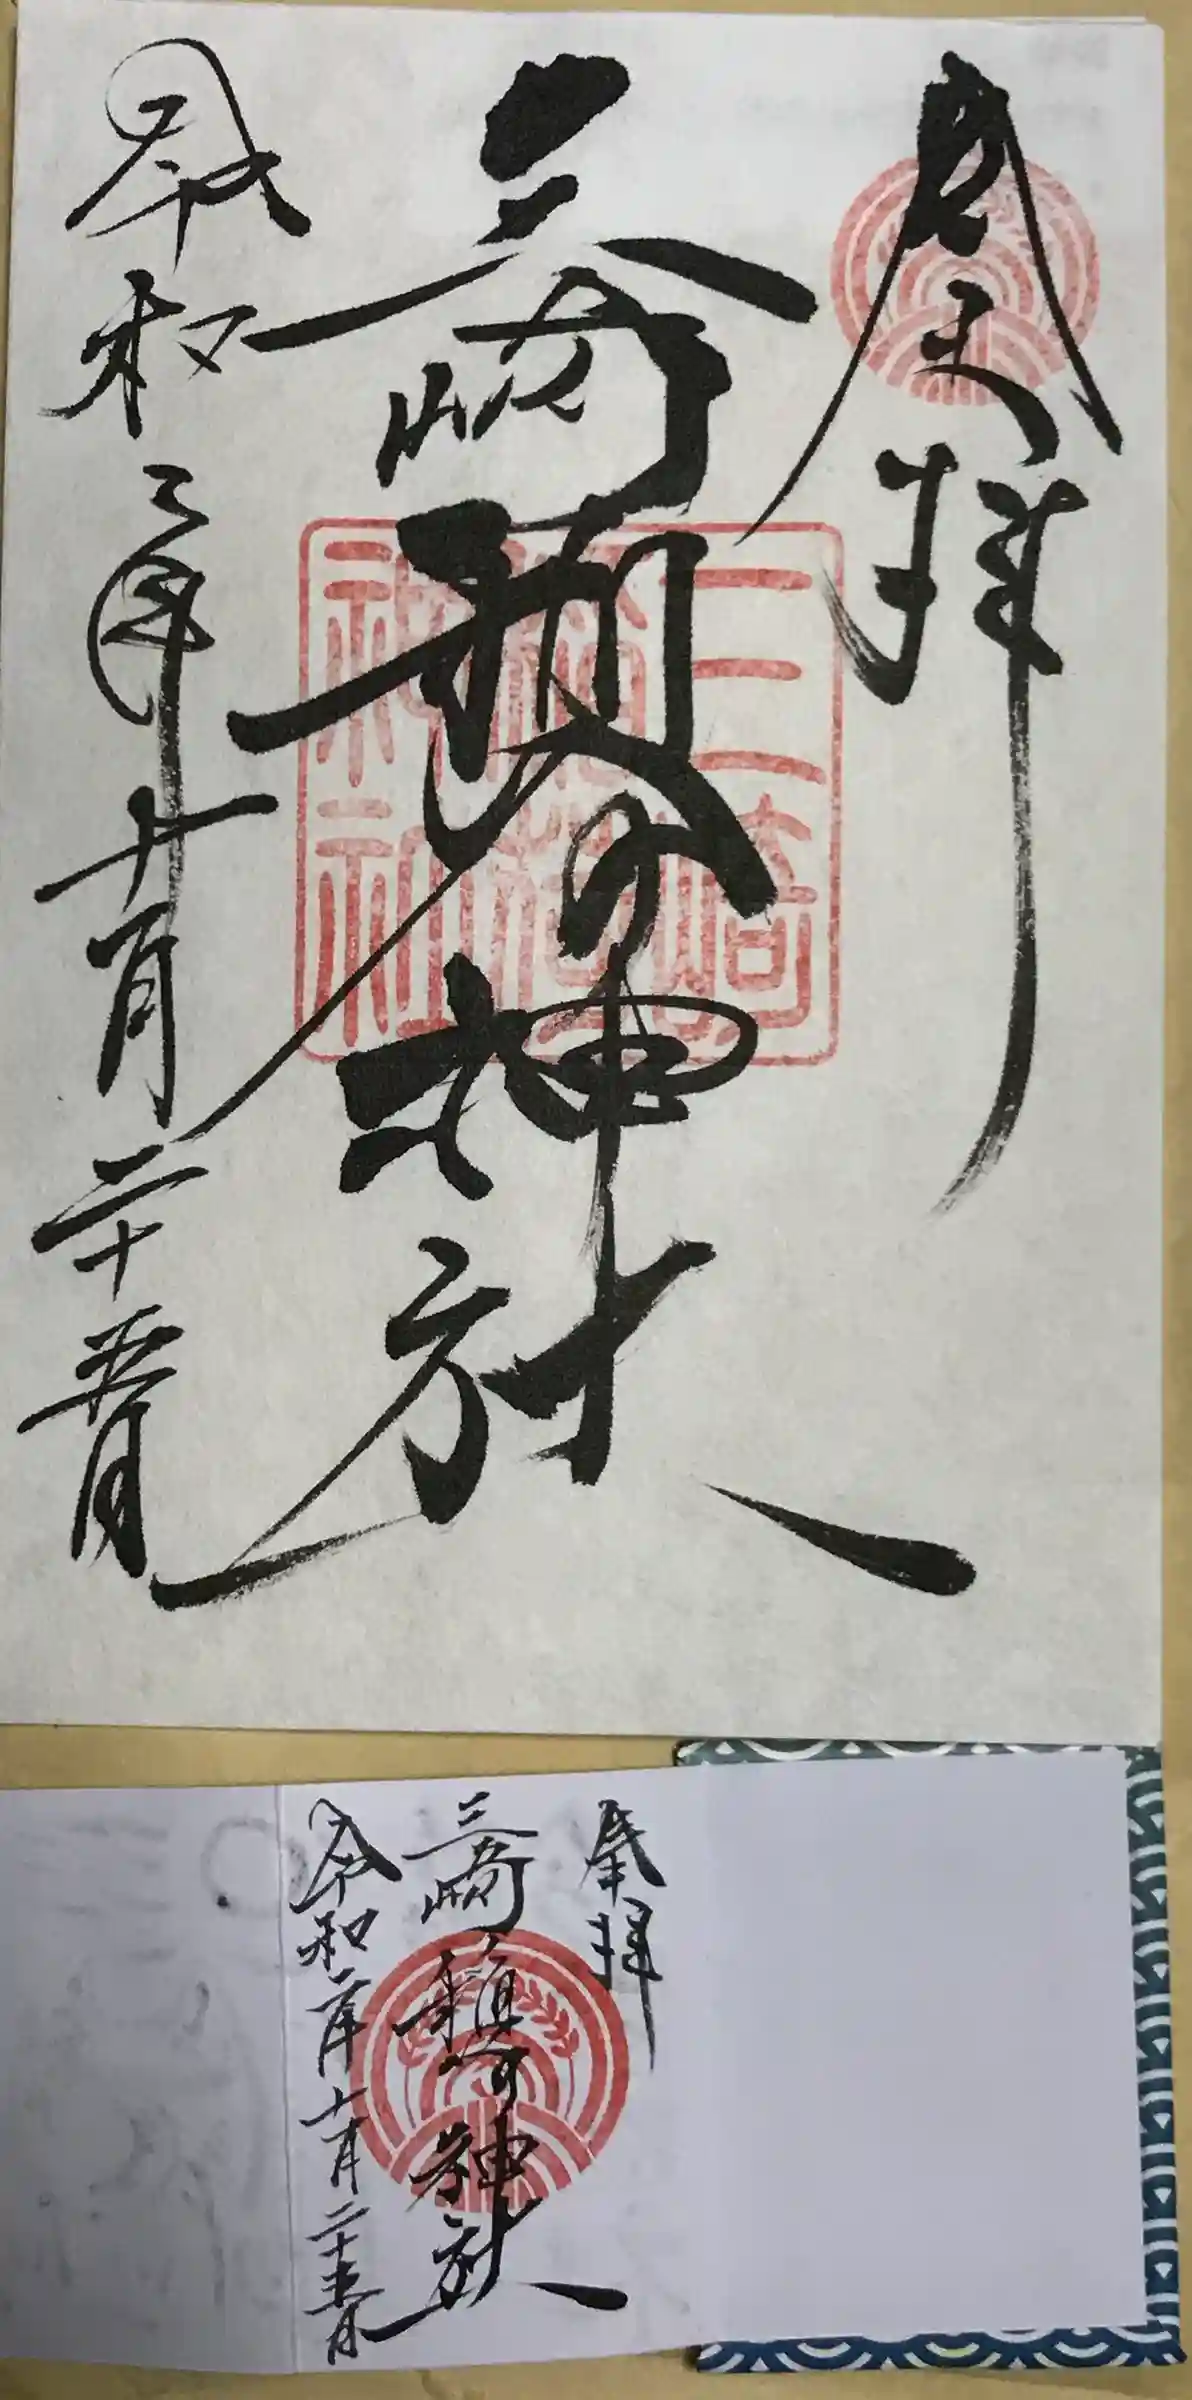 奉拝
三崎稲荷神社
令和二年十一月二十五日
三崎
稲荷
神社
奉拝
三崎稲荷神社
令和二年十一月二十五日